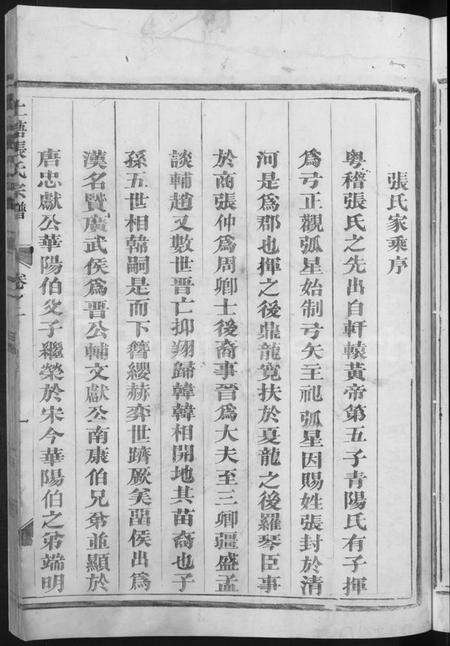 張氏家乘序
粵稽張氏之先出自軒轅黃帝第五子青陽氏有子揮
爲弓正觀弧星始制弓矢主祀弧星因賜姓張封於清
河是爲郡也揮之後鼎龍寬扶於夏龍之後羅琴臣事
於商張仲爲周卿士後裔事晉爲大夫至三卿疆盛孟
談輔趙又數世晉亡抑翔歸韓韓相開地其苗裔也子
孫五世相韓嗣是而下簪纓赫奕世躋厥美畱侯出爲
漢名暨廣武侯爲晋公輔文獻公南康伯兄弟並顯於
唐忠獻公華陽伯父子繼榮於宋今華陽伯之弟端明
張氏宗譜
卷之一